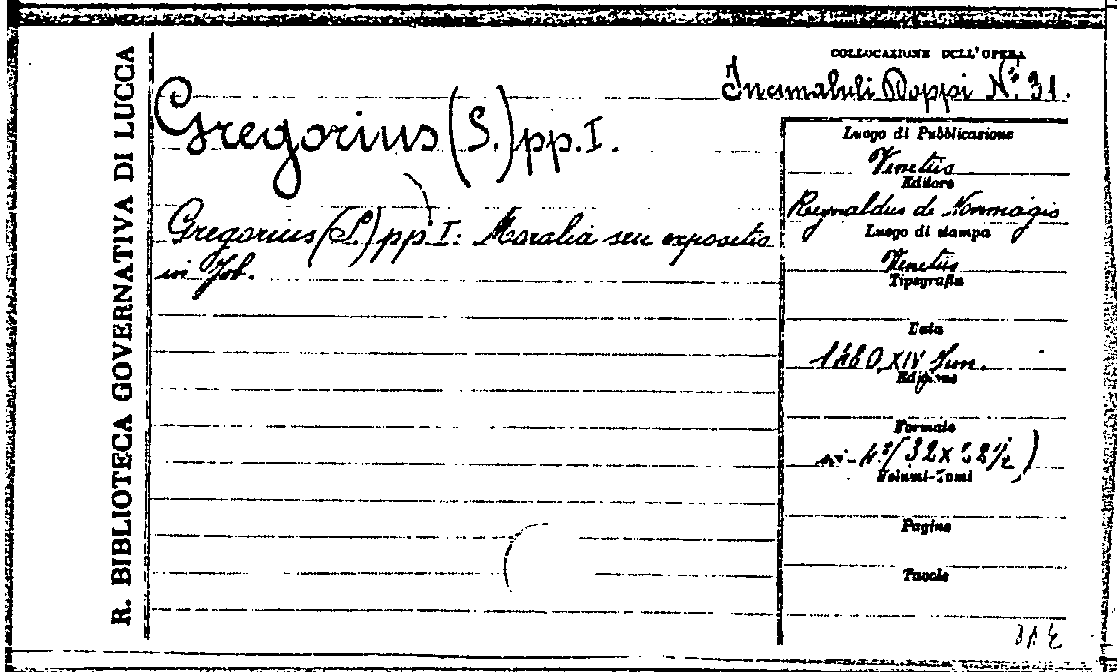 R. BIBLIOTECA GOVERNATIVA DI LUCCA
COLLOCAZIONE DELL'OPERA
Incunabuli Doppi N.° 31.
Gregorius (S.) pp. I.
Gregorius (S.) pp I: Moralia seu expositio
in Job.
Luogo di Pubblicazione
Venetiis
Editore
Reynaldus de Novimagio
Luogo di stampa
Venetiis
Tipografia
Data
1480, XIV Jun.
Edizione
Formato
in-4° (32 x
Volumi-Tomi
Pagine
Tavole